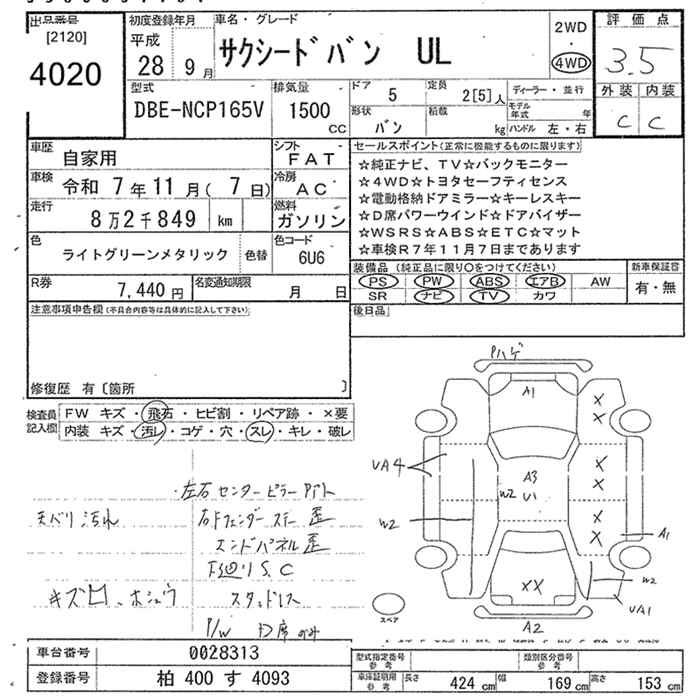 出品番号
[2120]
4020
初度登録年月
平成
28 9月
車名・グレード
サクシードバン UL
2WD
・
4WD
評価点
3.5
外装 内装
C C
型式
DBE-NCP165V
排気量
1500
CC
ドア
5
定員
2[5]人
形状
バン
積載
kg
ディーラー・並行
モデル年式 年
ハンドル 左・右
車歴
自家用
シフト
FAT
車検
令和 7年11月( 7日)
冷房
AC
走行
8万2千849 km
燃料
ガソリン
色
ライトグリーンメタリック
色替
色コード
6U6
R券
7,440円
名変通知期限
月 日
セールスポイント(正常に機能するものに限ります)
☆純正ナビ、TV☆バックモニター
☆4WD☆トヨタセーフティセンス
☆電動格納ドアミラー☆キーレスキー
☆D席パワーウインド☆ドアバイザー
☆WSRS☆ABS☆ETC☆マット
☆車検R7年11月7日まであります
装備品 (純正品に限り○をつけてください)
PS PW ABS エアB AW
SR ナビ TV カワ
新車保証書
有・無
後日品
注意事項申告欄(不具合内容等は具体的に記入して下さい)
修復歴 有〔箇所 〕
検査員記入欄
FW キズ・飛石・ヒビ割・リペア跡・×要
内装 キズ・汚レ・コゲ・穴・スレ・キレ・破レ
左右センターピラー
天バリ汚れ
右Fフェンダーステー歪
エンドパネル歪
下廻りS.C
キズ凹、ホシュウ
スタッドレス
P/W D席のみ
Pハゲ
A1
UA4
A3
W2
U1
W2
A1
W2
UA1
XX
A2
スペア
車台番号
0028313
登録番号
柏 400 す 4093
型式指定番号
参考
類別区分番号
参考
車庫証明用
参考
長さ 424 cm
幅 169 cm
高さ 153 cm